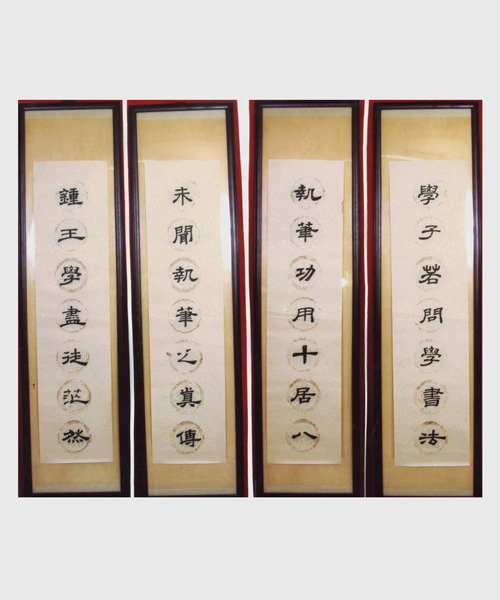 學子若問學書法
執筆功用十居八
未聞執筆之真傳
鍾王學盡徒茫然